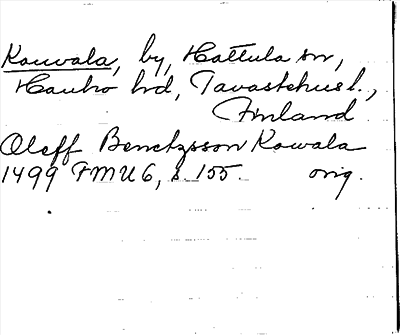 Kauvala, by, Hattula sn,
Hauho hd, Tavastehus l.,
Finland
Oleff Benctzsson Kowala
1499 FMU 6, s. 155. orig.